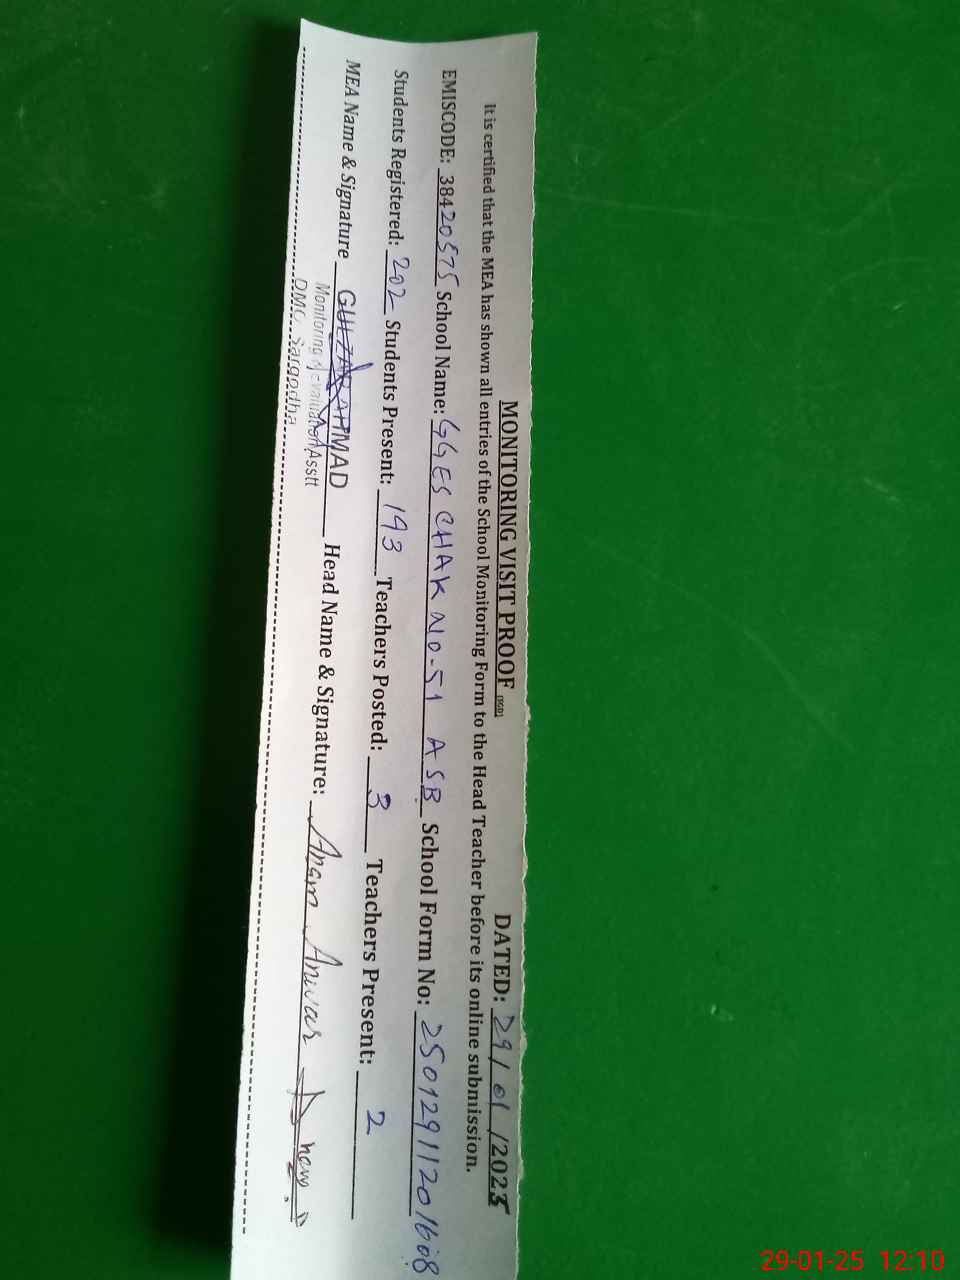 MONITORING VISIT PROOF (SGD) DATED: 29/01/2025
It is certified that the MEA has shown all entries of the School Monitoring Form to the Head Teacher before its online submission.
EMISCODE: 38420575 School Name: GGES CHAK NO-51 A SB School Form No: 25012911201608
Students Registered: 202 Students Present: 193 Teachers Posted: 3 Teachers Present: 2
MEA Name & Signature GULZAR AHMAD Head Name & Signature: Anam Anwar
Monitoring & Evaluation Asstt
DMO Sargodha
29-01-25 12:10